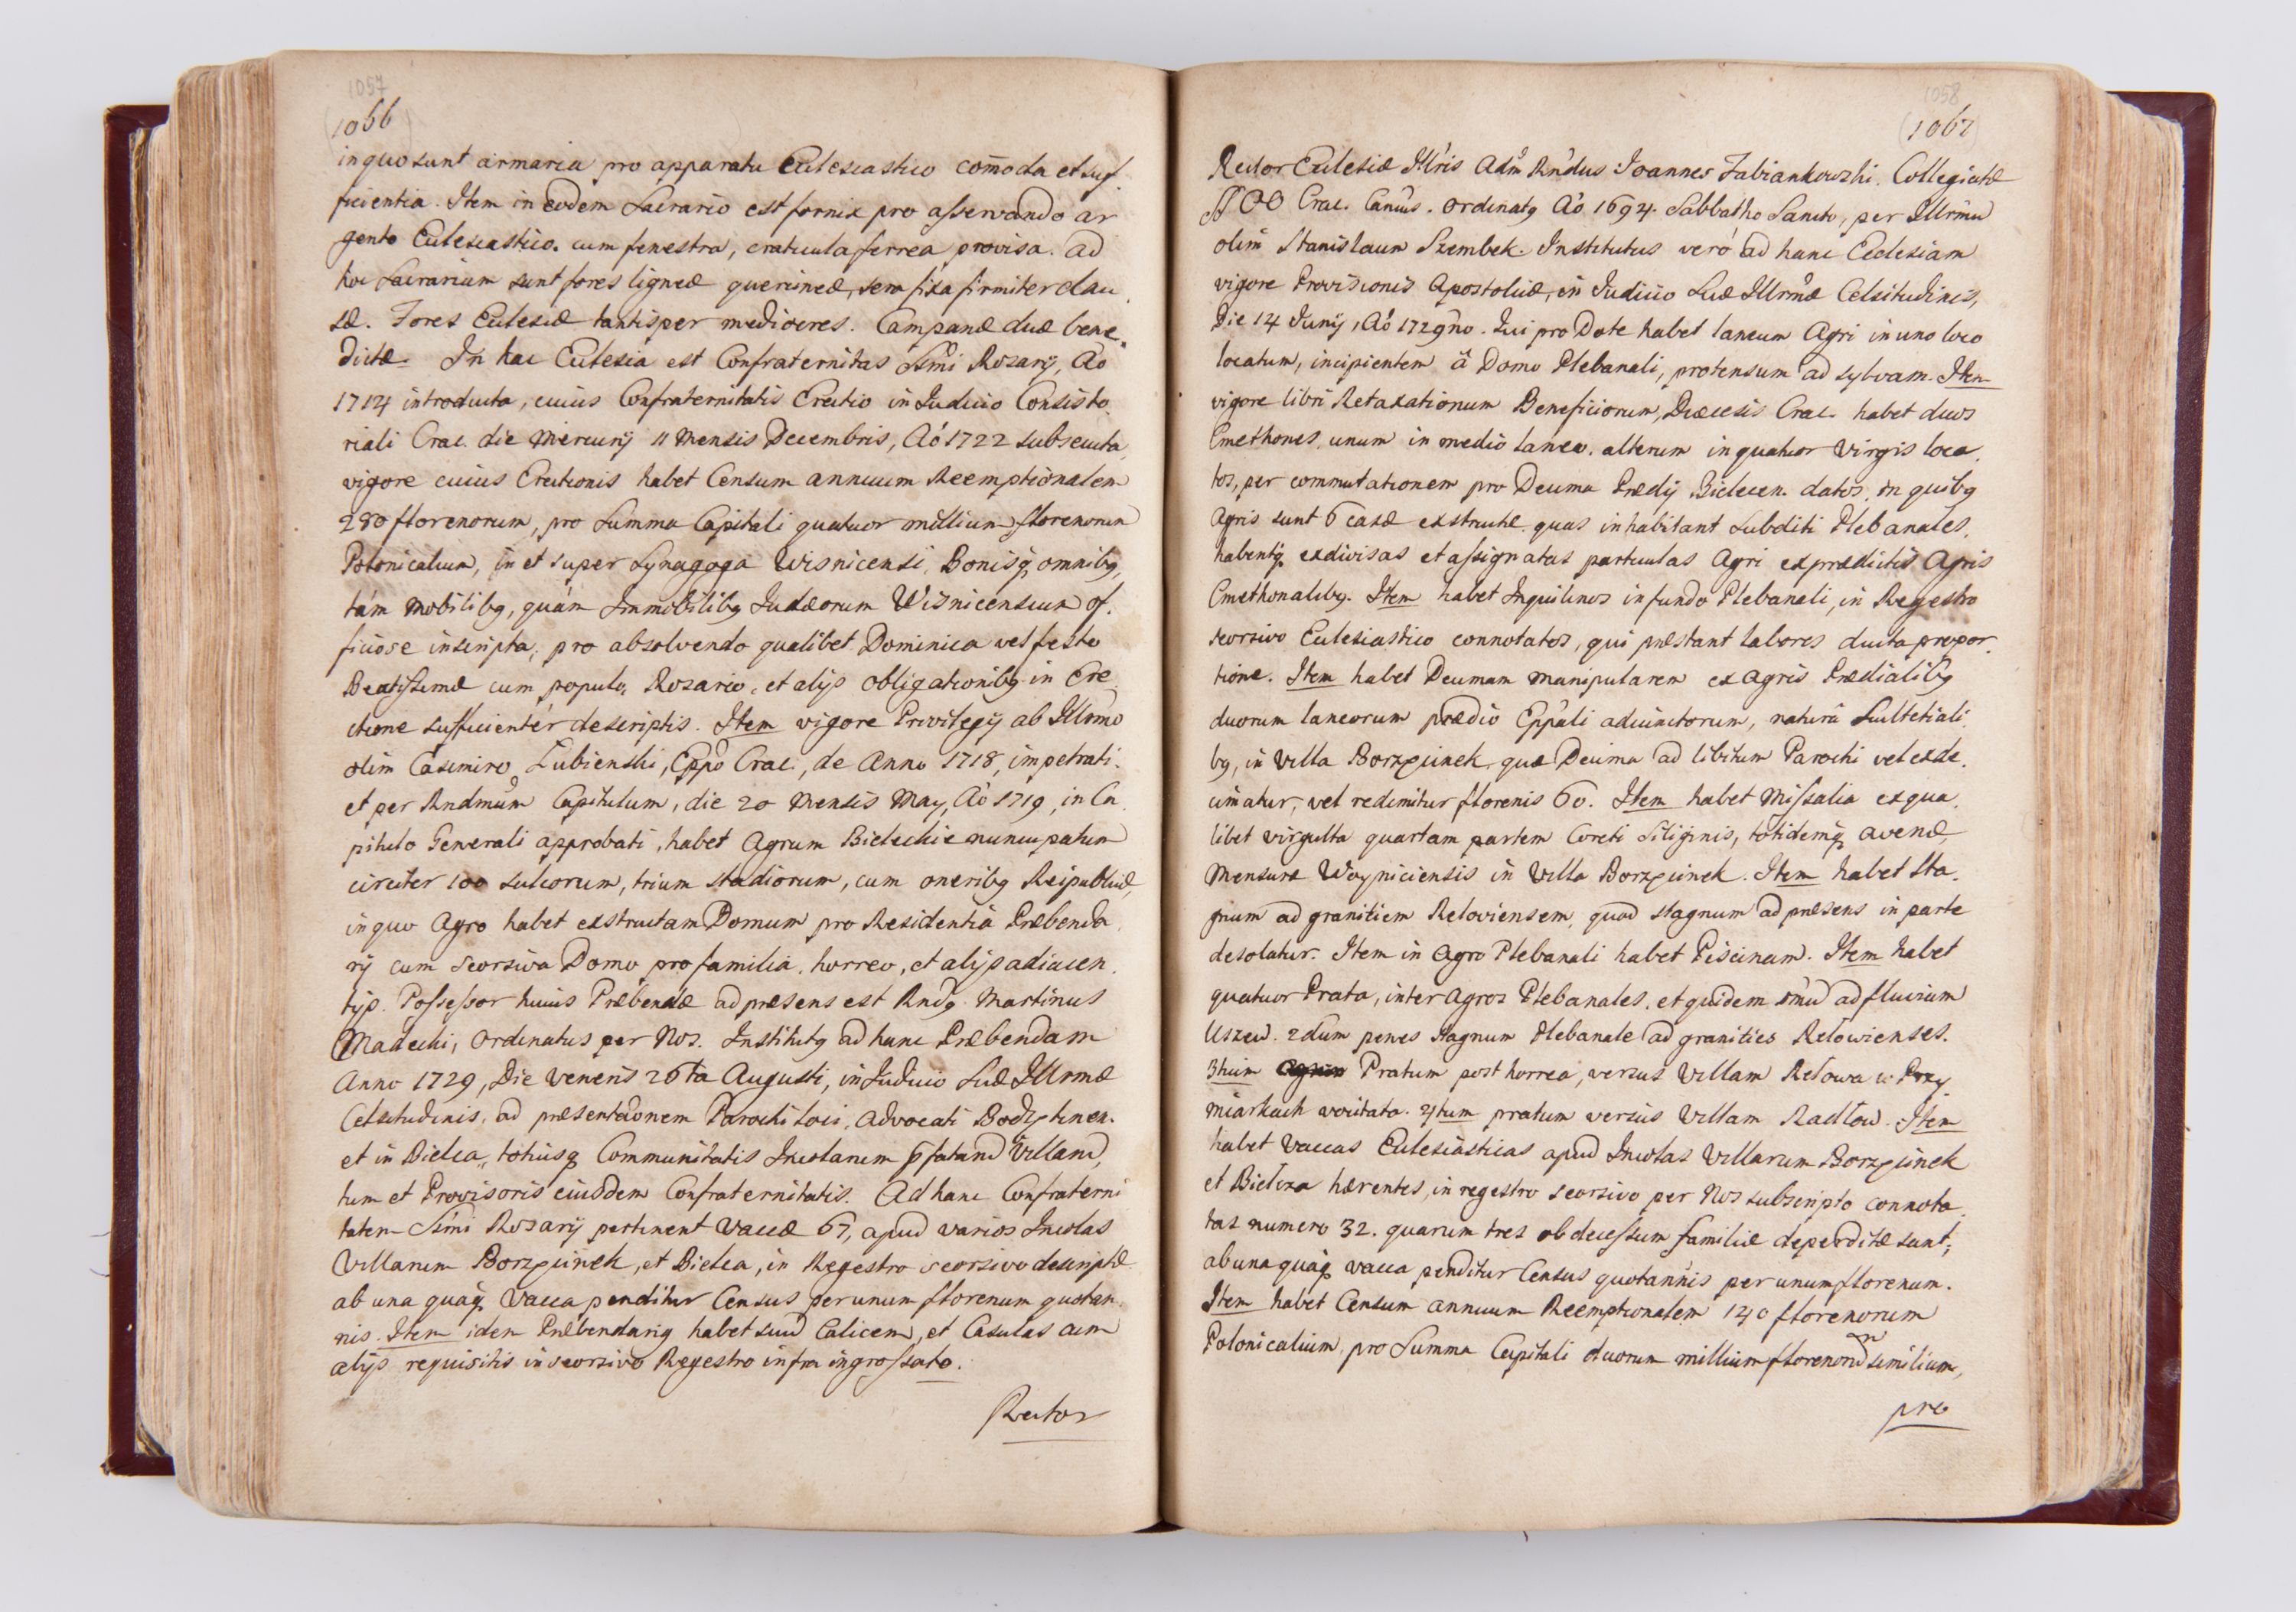 1057
1066
in quo sunt armaria pro apparatu Ecclesiastico com̄oda et suf
ficientia. Item in eodem Sacrario est fornix pro asservando ar
gento Ecclesiastico. cum fenestra, craticula ferrea provisa. ad
hoc Sacrarium sunt fores ligneæ quercineæ, sera fixa firmiter clau
sæ. Fores Ecclesiæ tantisper mediocres. Campanæ duæ bene
dictæ. In hac Ecclesia est Confraternitas SSmi Rosarij, Aó
1714 introducta, cuius Confraternitatis Erectio in Iudicio Consisto
riali Crac. die Mercurij 11 Mensis Decembris, Aó 1722 subsecuta,
vigore cuius Erectionis habet Censum annuum Reemptionalem
280 florenorum, pro Summa Capitali quatuor millium florenorum
Polonicalium, in et super Synagoga Wisnicensi, Bonisq, omnibg,
tám Mobilibg, quám Immobilibg Iudæorum Wisnicensium of.
ficiose inscripta, pro absolvendo qualibet Dominica vel festo
Beatissimæ cum populo, Rosario, et alijs obligationibg in Ere
ctione sufficientér descriptis. Item vigore Privilegij ab Illrmo
olim Casimiro Łubienski, Eppo Crac., de Anno 1718, impetrati.
et per Rndmum Capitulum, die 20 Mensis May, Aó 1719, in Ca
pitulo Generali approbati, habet Agrum Bieleckie nuncupatum
circiter 100 sulcorum, trium stadiorum, cum oneribg Reipublicæ,
in quo Agro habet exstructam Domum pro Residentia Præbenda
rij cum seorsiva Domo pro familia, horreo, et alijs adiacen
tijs. Possessor huius Præbendæ ad præsens est Rndg Martinus
Madecki, Ordinatus per Nos. Institutg ad hanc Præbendam
Anno 1729, Die Veneris 26ta Augusti, in Iudicio Suæ Illrmæ
Celsitudinis, ad præsentaonem Parochi loci, Advocati Bodzętinen.
et in Bielca, totiusq Communitatis Incolarum p̄fatarū Villarū,
tum et Provisoris eiusdem Confraternitatis. Ad hanc Confraterni
tatem SSmi Rosarij pertinent Vaccæ 67, apud varios Incolas
Villarum Borzęcinek, et Bielca, in Regestro seorsivo descriptæ
ab una quaq, Vacca penditur Census per unum florenum quotan
nis. Item idem Præbendarig habet suū Calicem, et Casulas cum
alijs requisitis in seorsivo Regestro infra ingrossato.
Rector
1058
1067
Rector Ecclesiæ Illris Adm Rndus Ioannes Fabiankowski. Collegiatæ
SS OO Crac. Canicus. Ordinatg Aó 1694. Sabbatho Sancto, per Illrmu
olim Stanislaum Szembek. Institutus veró ad hanc Ecclesiam
vigore Provisionis Apostolicæ, in Iudicio Suæ Illrmæ Celsitudinis,
Die 14 Iunij, Aó 1729no. Qui pro Dote habet laneum Agri in uno loco
locatum, incipientem â Domo Plebanali, protensum ad sylvam. Item
vigore libri Retaxationum Beneficiorum, Diæcesis Crac. habet duos
Cmethones, unum in medio laneo, alterum in quatuor Virgis loca
tos, per commutationem pro Decima Prædij Bielecen. datos, in quibg
Agris sunt 6 casæ exstructæ, quas inhabitant Subditi Plebanales,
habentq, exdivisas et assignatas particulas Agri ex prædictis Agris
Cmethonalibg. Item habet Inquilinos in fundo Plebanali, in Regestro
seorsivo Ecclesiastico connotatos, qui præstant labores ducta propor
tione. Item habet Decimam manipularem ex agris Prædialibg
duorum laneorum prædio Eppali adiunctorum, naturâ Scultetiali
bg, in Villa Borzęcinek, quæ Decima ad libitum Parochi vel exde
cimatur, vel redimitur florenis 60. Item habet Missalia ex qua
libet virgulta quartam partem Coreti Siliginis, totidemq, avenæ,
Mensuræ Woyniciensis in Villa Borzęcinek. Item habet Sta
gnum ad granitiem Relowiensem, quod stagnum ad præsens in parte
desolatur. Item in Agro Plebanali habet Piscinam. Item habet
quatuor Prata, inter Agros Plebanales, et quidem 1mū ad fluvium
Uszew. 2dum penes Stagnum Plebanale ad granities Relowienses.
3tium Pratum post horrea, versus Villam Relowa w Przy
miarkach vocitata. 4tum pratum versus Villam Radłow. Item
habet Vaccas Ecclesiasticas apud Incolas Villarum Borzęcinek
et Bielcza hærentes, in regestro seorsivo per Nos subscripto connota
tas numero 32. quarum tres ob decessum familiæ deperditæ sunt,
ab una quaq, vacca penditur Census quotannis per unum florenum.
Item habet Censum annuum Reemptionalem 140 florenorum
Polonicalium, pro Summa Capitali duorum millium florenorū similium,
pro